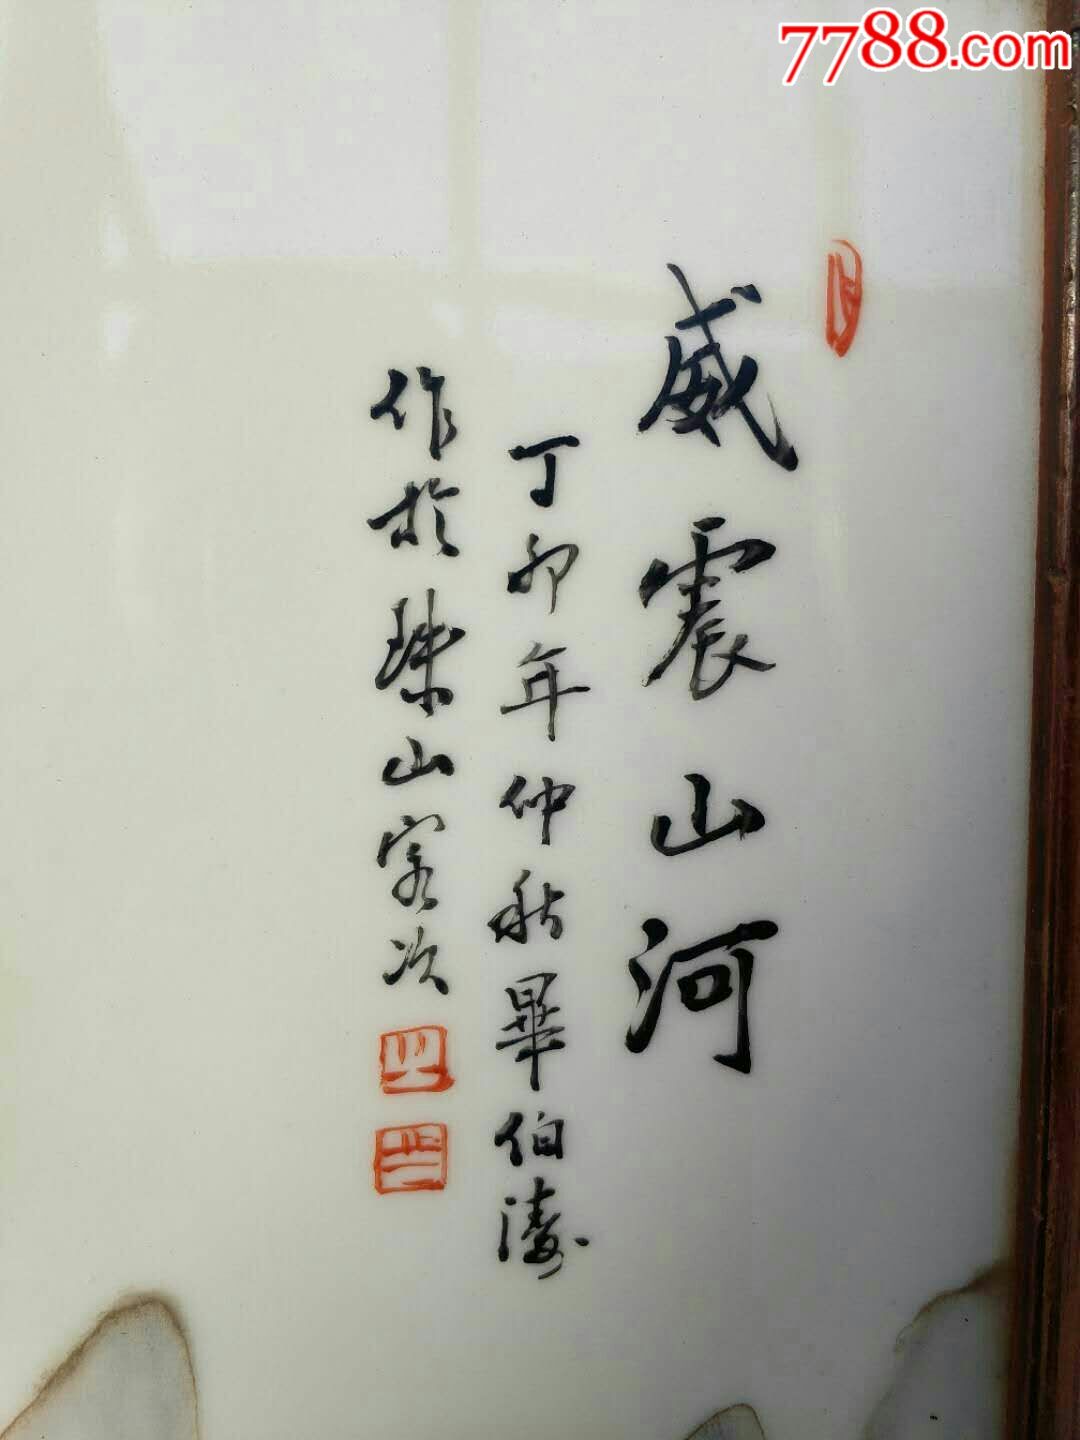 7788.com
威震山河
丁卯年仲秋畢伯濤
作於珠山客次